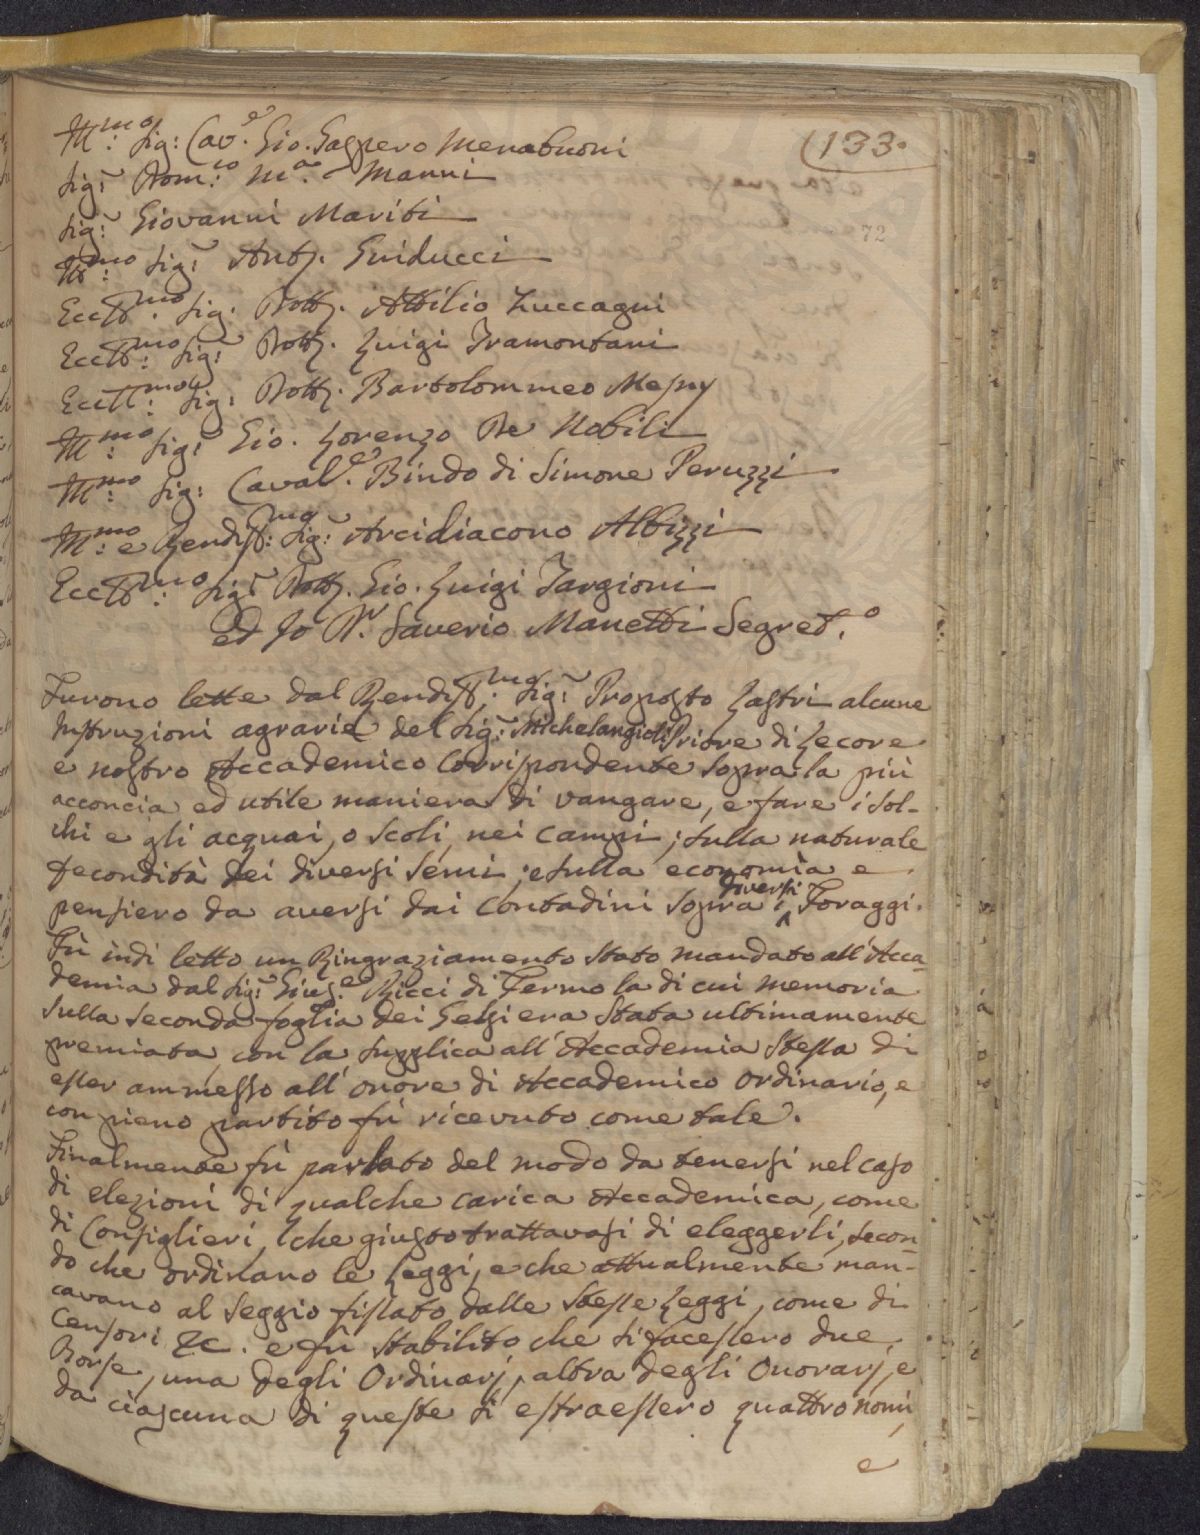 (133.
Ill.mo Sig: Cav.e Gio. Gaspero Menabuoni
Sig.r Dom.co M.a Manni
72
Sig.r Giovanni Mariti
Ill.mo Sig.r Ant. Guiducci
Eccell.mo Sig. Dott. Attilio Zuccagni
Eccell.mo Sig.r Dott. Luigi Tramontani
Eccell.mo Sig: Dott. Bartolommeo Mesny
Ill.mo Sig.r Gio. Lorenzo De Nobili
Ill.mo Sig: Caval.e Bindo di Simone Peruzzi
Ill.mo e Rendiss.mo Sig.r Arcidiacono Albizzi
Eccell.mo Sig.r Dott. Gio. Luigi Targioni
ed Io D.r Saverio Manetti Segret.o
Furono lette dal Rendiss.mo Sig.r Proposto Lastri alcune
Instruzioni agrarie del Sig.r Michelangioli Priore di Lecore
e nostro Accademico Corrispondente sopra la più
acconcia ed utile maniera di vangare, e fare i sol-
chi e gli acquai, o scoli, nei campi; sulla naturale
fecondità dei diversi semi; e sulla economia e
pensiero da aversi dai Contadini sopra i diversi Foraggi.
Fù indi letto un Ringraziamento stato mandato all'Acca-
demia dal Sig.r Gius.e Ricci di Fermo la di cui memoria
sulla seconda foglia dei Gelsi era stata ultimamente
premiata, con la supplica all'Accademia stessa di
esser ammesso all'onore di Accademico Ordinario, e
con pieno partito fù ricevuto come tale.
Finalmente fù parlato del modo da tenersi nel caso
di elezioni di qualche carica Accademica, come
di Consiglieri, (che giusto trattavasi di eleggerli, secon-
do che ordinano le Leggi, e che attualmente man-
cavano al seggio fissato dalle stesse Leggi, come di
Censori &c. e fù stabilito che si facessero due
Borse, una degli Ordinarj, altra degli Onorarj, e
da ciascuna di queste si estraessero quattro nomi,
e